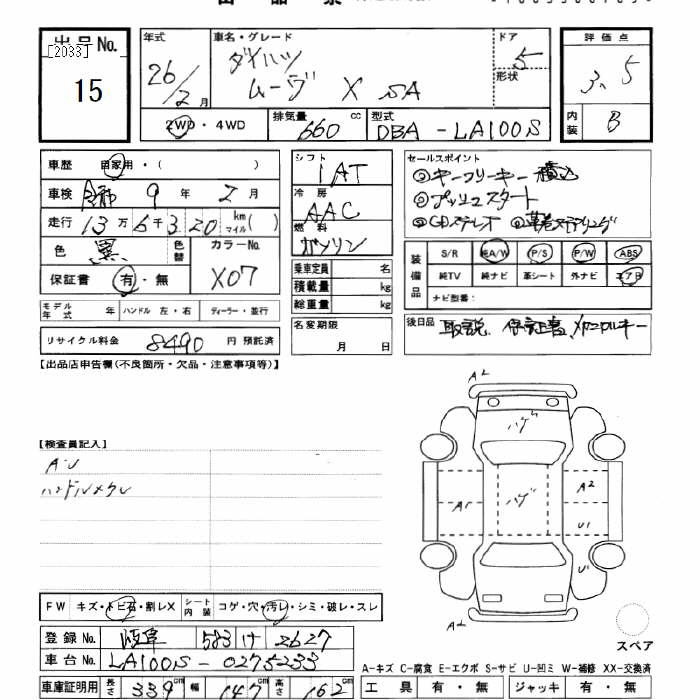 出品No.
[2033]
15
年式
26/2月
車名・グレード
ダイハツ
ムーヴ X SA
ドア
5
形状
評価点
3.5
内装
B
2WD・4WD
排気量 660 cc
型式 DBA-LA100S
車歴 自家用・( )
車検 令和 9年 2月
走行 13万6千320 km マイル( )
色 黒 色替
カラーNo. X07
保証書 有・無
モデル年式 年 ハンドル 左・右 ディーラー・並行
リサイクル料金 8490 円 預託済
シフト
IAT
冷房
AAC
燃料
ガソリン
乗車定員 名
積載量 kg
総重量 kg
名変期限
月 日
セールスポイント
◎キーフリーキー 積込
◎プッシュスタート
◎CDステレオ ◎革巻ステアリング
装備品
S/R 純A/W P/S P/W ABS
純TV 純ナビ 革シート 外ナビ エアB
ナビ型番:
後日品 取説、保証書、メカニカルキー
【出品店申告欄(不良箇所・欠品・注意事項等)】
【検査員記入】
A・U
ハンドルメクレ
A2
ハゲ
A1
ハゲ
A2
U1
U1
A2
スペア
FW キズ・トビ石・割レX シート内装 コゲ・穴・汚レ・シミ・破レ・スレ
登録No. 岐阜 583 け 2627
車台No. LA100S-0275233
A-キズ C-腐食 E-エクボ S-サビ U-凹ミ W-補修 XX-交換済
車庫証明用 長さ 339 cm 幅 147 cm 高さ 162 cm
工具 有・無 ジャッキ 有・無